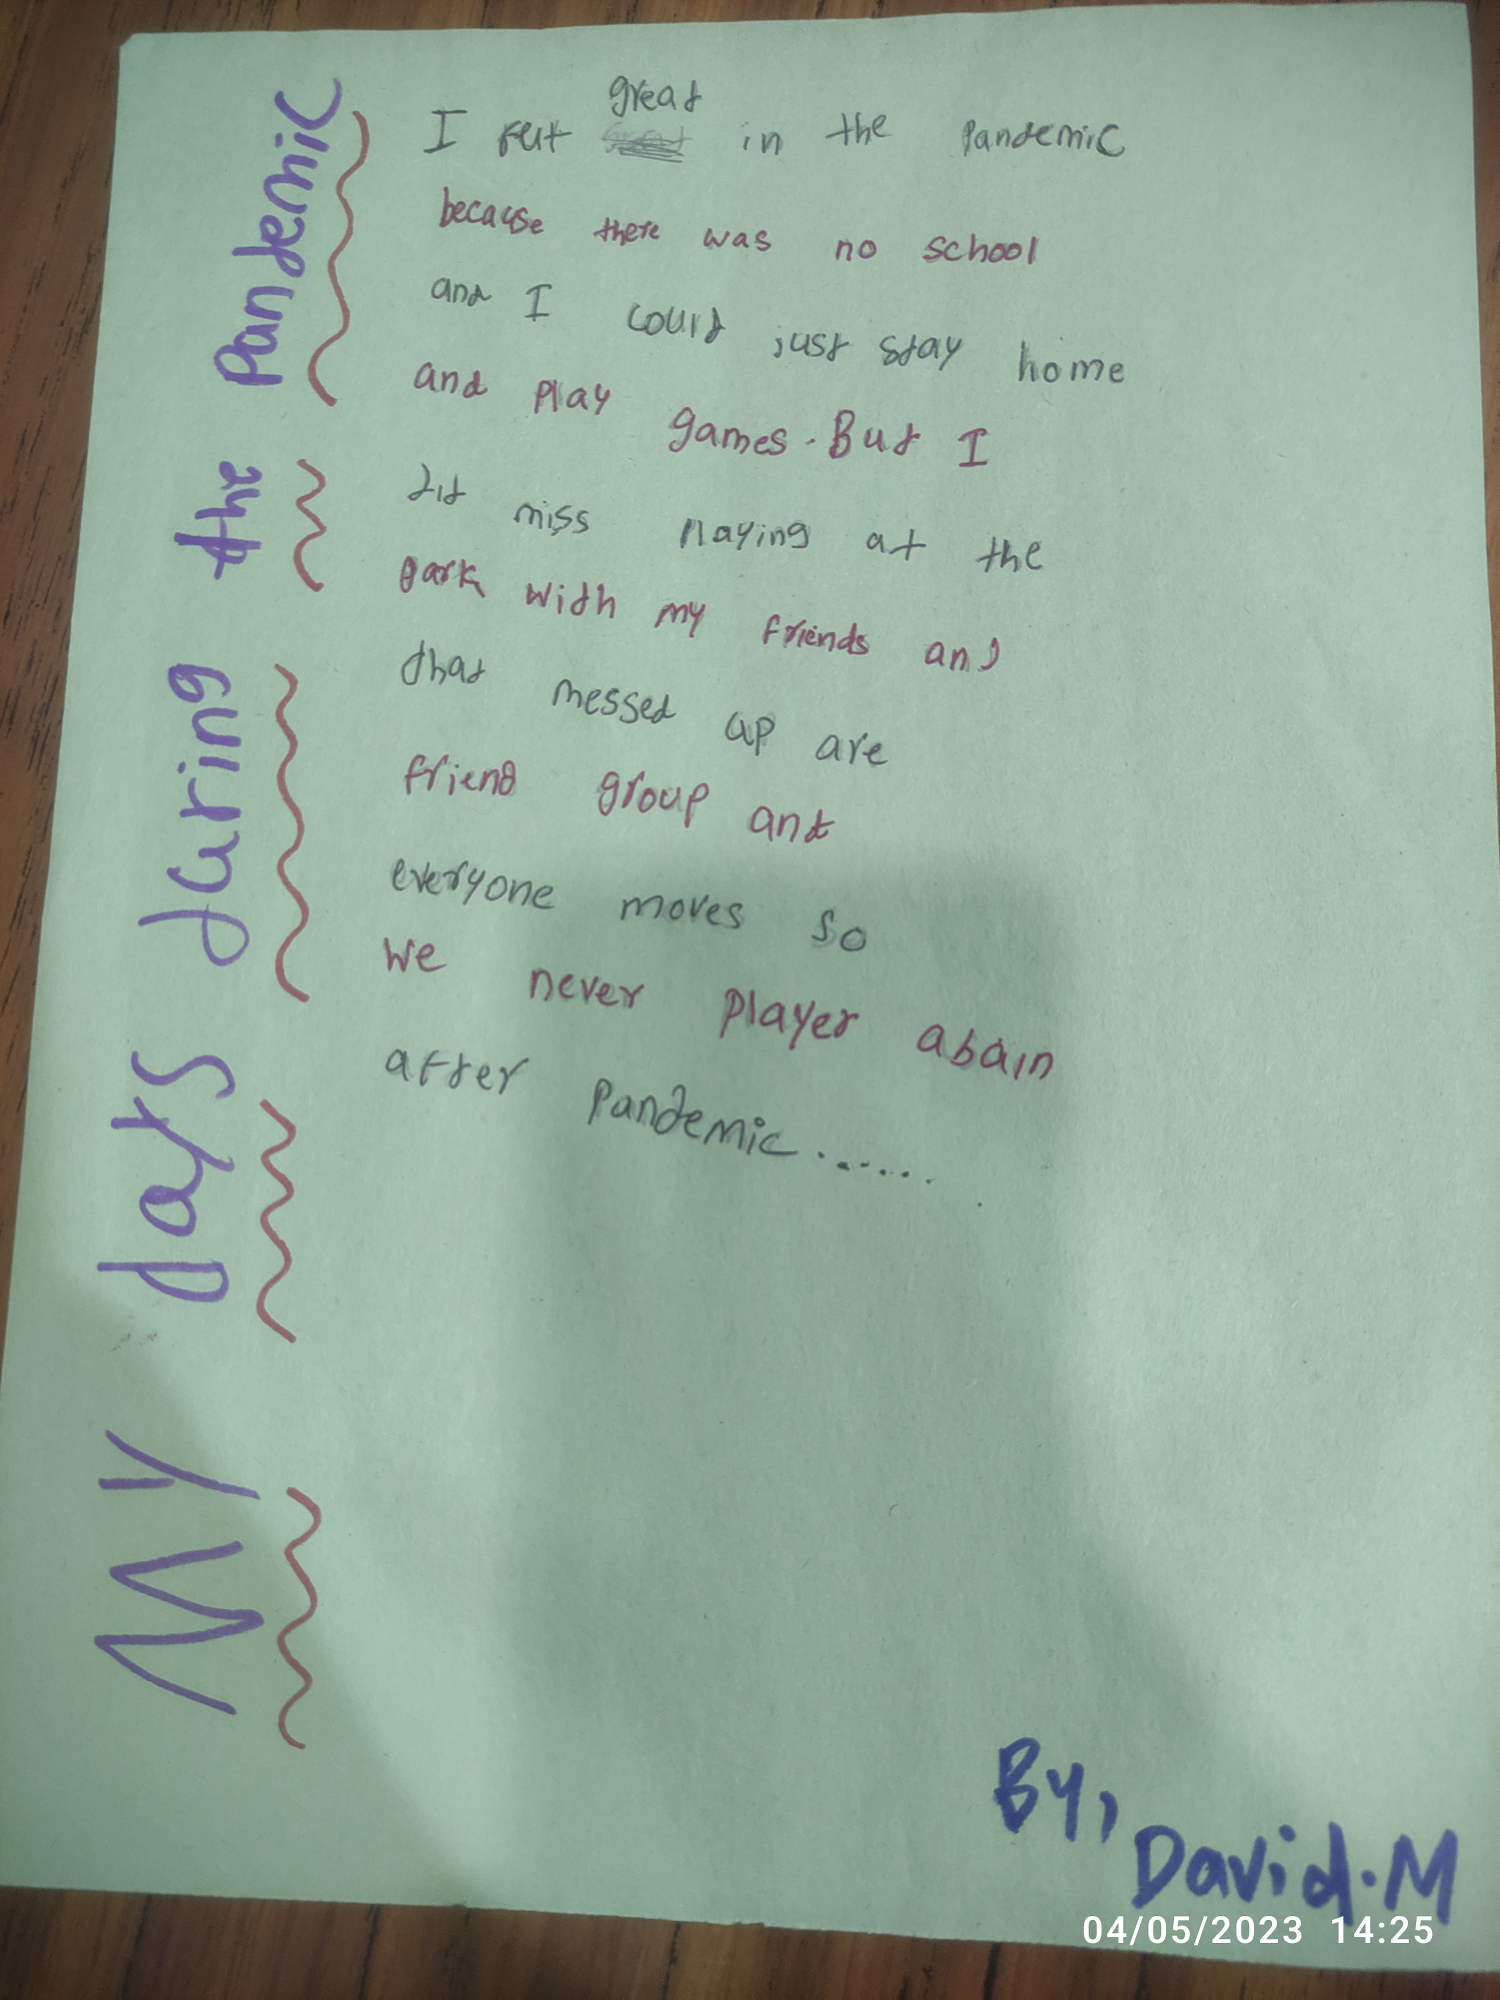 My days during the Pandemic
I felt great in the Pandemic
because there was no school
and I could just stay home
and play games. But I
did miss playing at the
park with my friends and
that messed up are
friend group and
everyone moves so
we never player abain
after Pandemic.......
By, David.M
04/05/2023 14:25